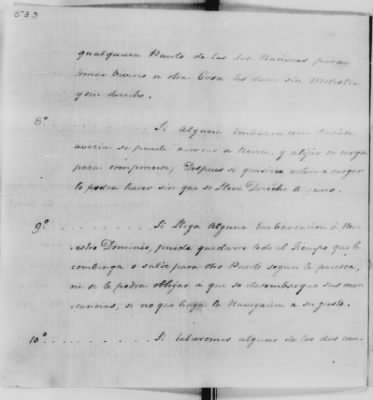 533
qualquiera Puerto de las dos Naciones para
tomar Viveres u otra Cosa los dexe sin Molestia
y sin derecho.
8º. Si Alguna Embarcacion tuviese
averia se puede a tierra, y alijar su carga
para componerse; Despues si quisiera volver a cargar
lo podra hacer sin que se lleve Derecho Alguno.
9º. Si Llega Alguna Embarcacion á Nu-
estro Dominio, puede quedarse todo el Tiempo que le
combenga o salir para otro Puerto segun le paresca,
ni se le podra obligar a que se desembarque sus mer-
cancias, si no que haga la Navegacion a su gusto.
10º. Si alguno de las dos com-